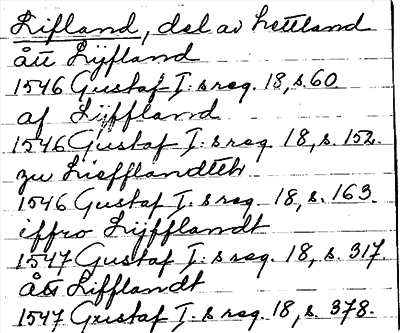 Lifland, del av Lettland
ått Lijfland
1546 Gustaf I:s reg. 18, s. 60.
af Lijffland
1546 Gustaf I:s reg. 18, s. 152.
zu Liefflandtth
1546 Gustaf I:s reg. 18, s. 163.
iffro Lijfflandt
1547 Gustaf I:s reg. 18, s. 317.
Ått Lifflandt
1547 Gustaf I:s reg. 18, s. 378.